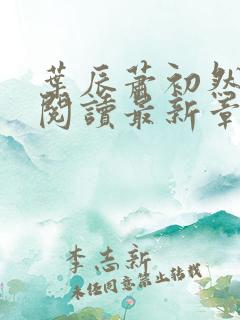 葉辰蕭初然
閱讀最新章
李志新
未經同意禁止轉載